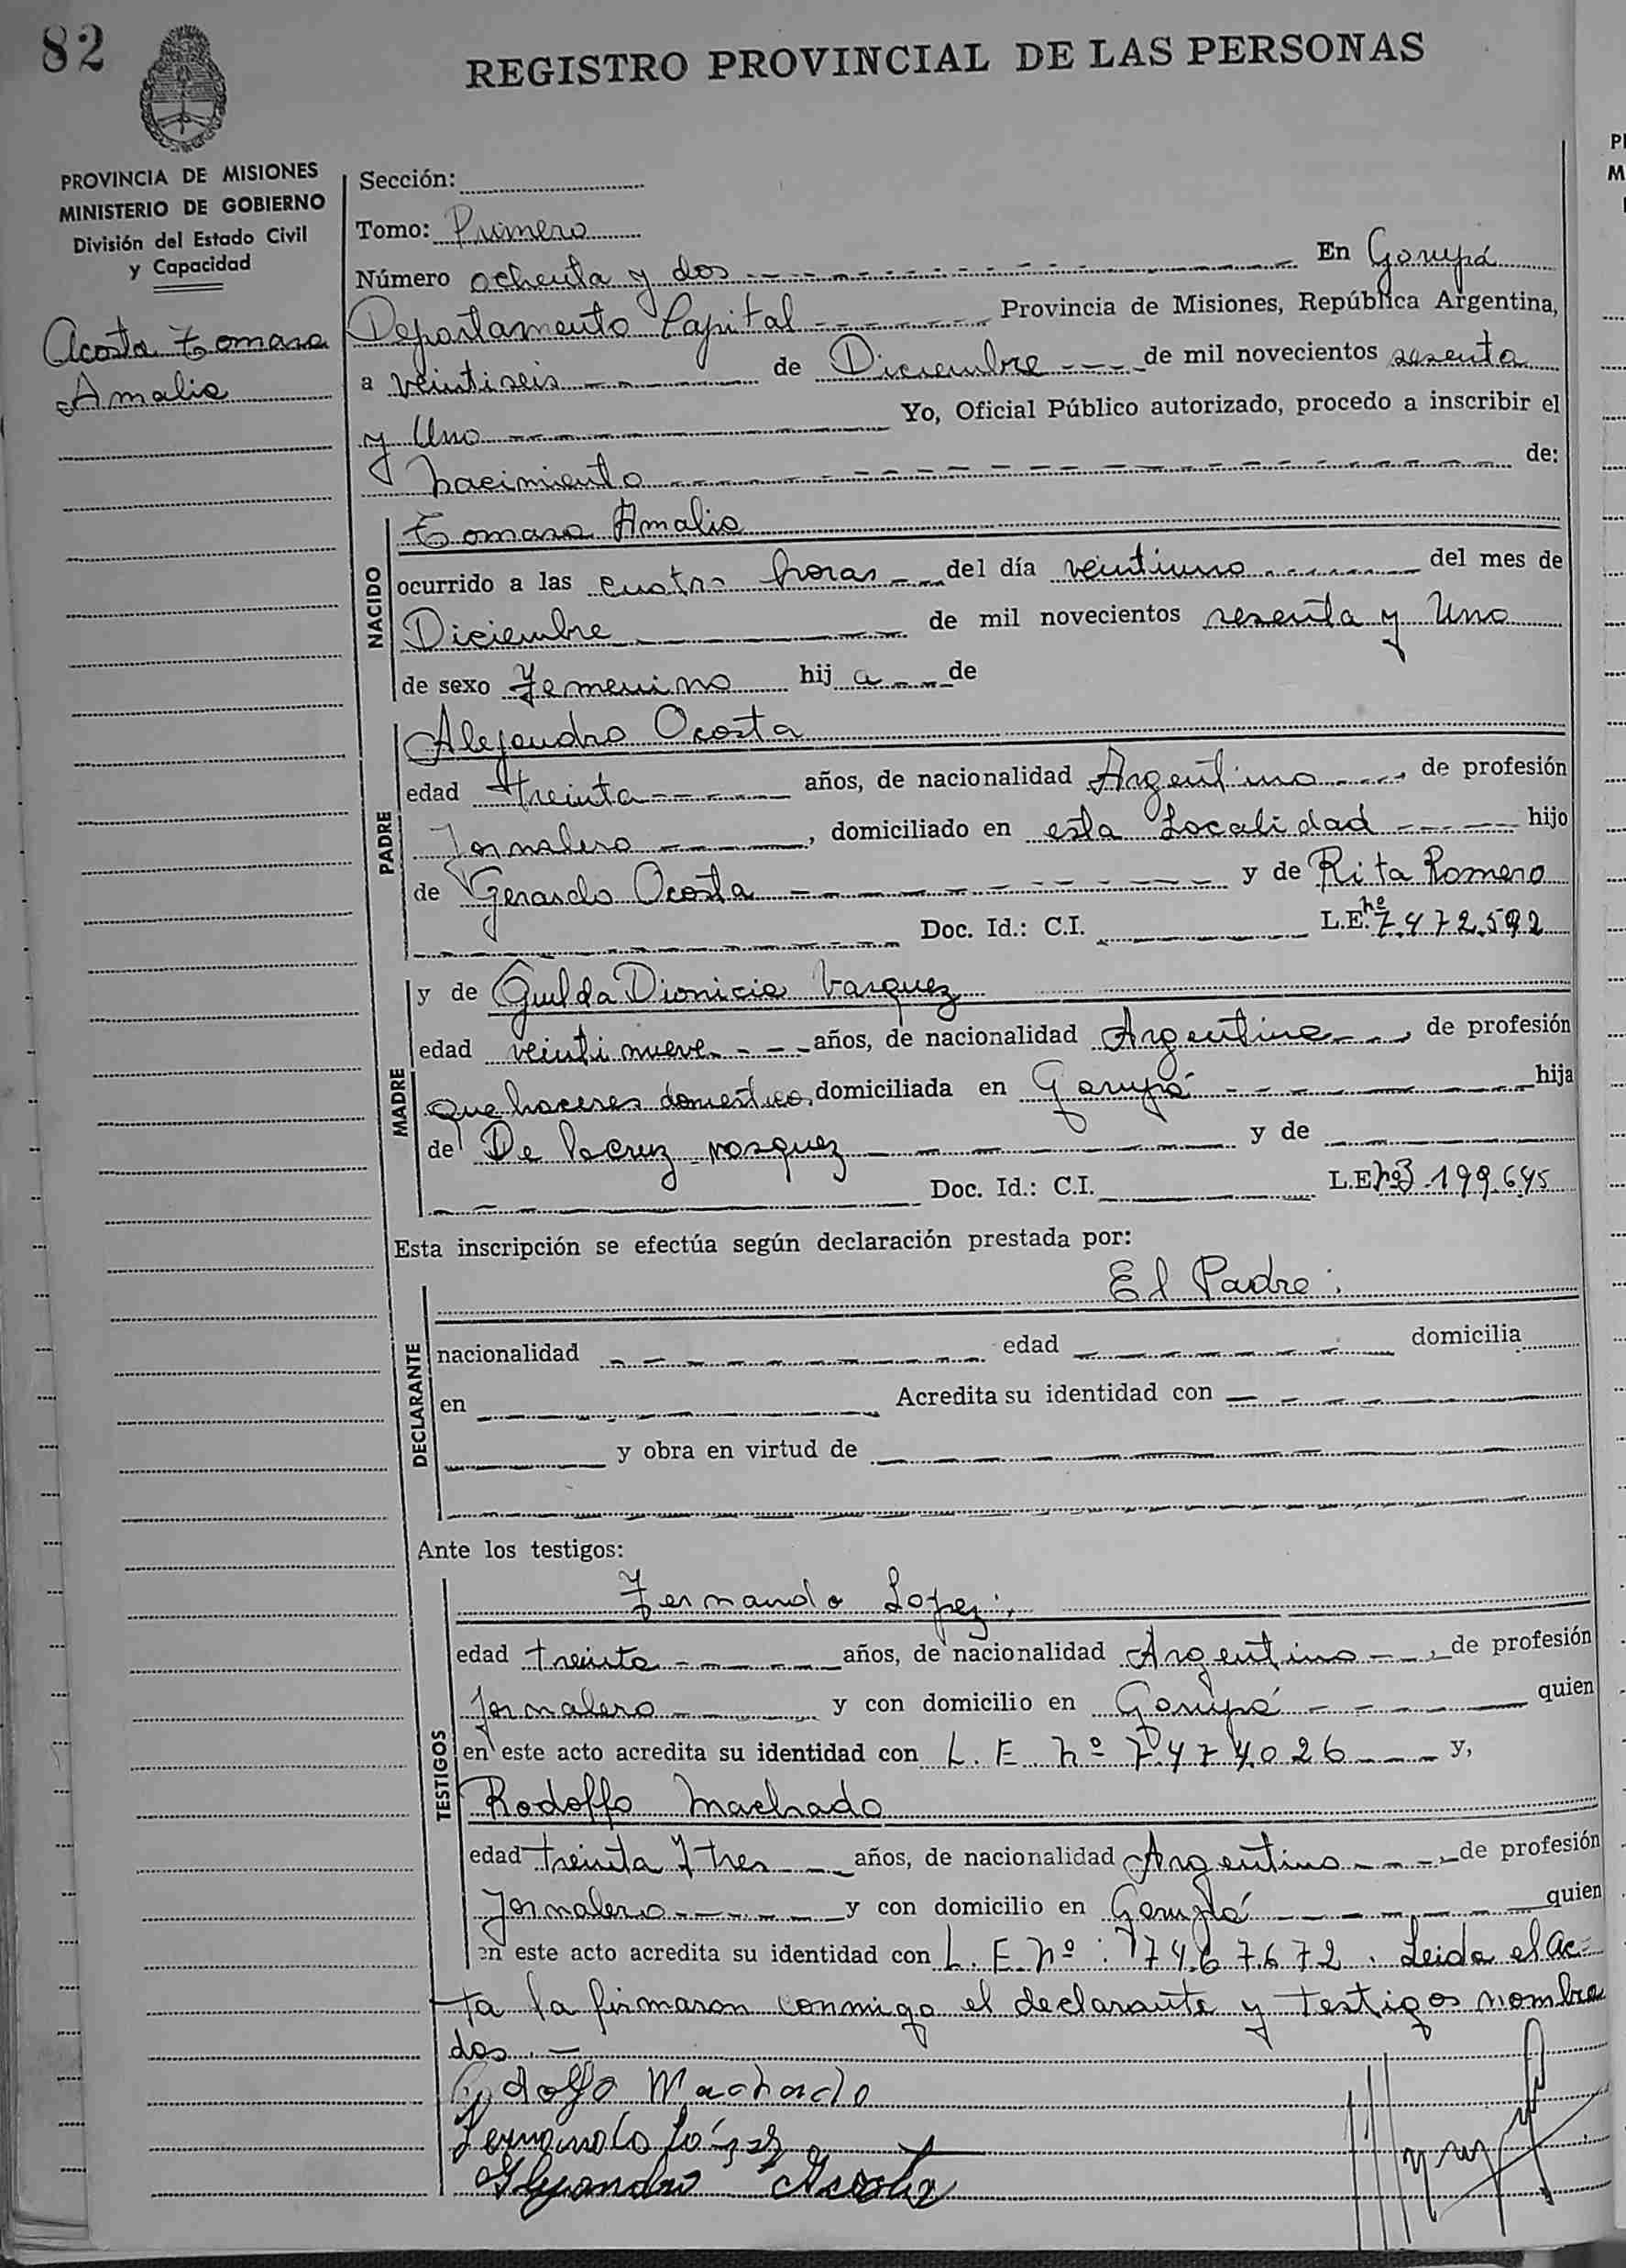 82
REGISTRO PROVINCIAL DE LAS PERSONAS
PROVINCIA DE MISIONES
MINISTERIO DE GOBIERNO
División del Estado Civil
y Capacidad
Acosta Tomasa
Amalia
Sección:
Tomo: Primero
Número ochenta y dos En Garupá
Departamento Capital Provincia de Misiones, República Argentina,
a veintiseis de Diciembre de mil novecientos sesenta
y Uno Yo, Oficial Público autorizado, procedo a inscribir el
nacimiento de:
NACIDO
Tomasa Amalia
ocurrido a las cuatro horas del día veintiuno del mes de
Diciembre de mil novecientos sesenta y Uno
de sexo Femenino hij a de
PADRE
Alejandro Acosta
edad treinta años, de nacionalidad Argentino de profesión
Jornalero, domiciliado en esta Localidad hijo
de Gerardo Acosta y de Rita Romero
Doc. Id.: C.I. L.E. nº 7.472.592
MADRE
y de Guilda Dionicia Vasquez
edad veintinueve años, de nacionalidad Argentina, de profesión
que haceres domestico, domiciliada en Garupá hija
de De lacruz vasquez y de
Doc. Id.: C.I. L.E nº 3.199.645
Esta inscripción se efectúa según declaración prestada por:
DECLARANTE
El Padre:
nacionalidad edad domicilia
en Acredita su identidad con
y obra en virtud de
Ante los testigos:
TESTIGOS
Fernando Lopez,
edad treinta años, de nacionalidad Argentino, de profesión
Jornalero y con domicilio en Garupá quien
en este acto acredita su identidad con L. E nº 7.474.026 y,
Rodolfo Machado
edad treinta y tres años, de nacionalidad Argentino, de profesión
Jornalero y con domicilio en Garupá quien
en este acto acredita su identidad con L. E nº: 7467.672. Leida el ac-
ta la firmaron conmigo el declarante y testigos nombra
dos.-
Rodolfo Machado
Fernando López
Alejandro Acosta